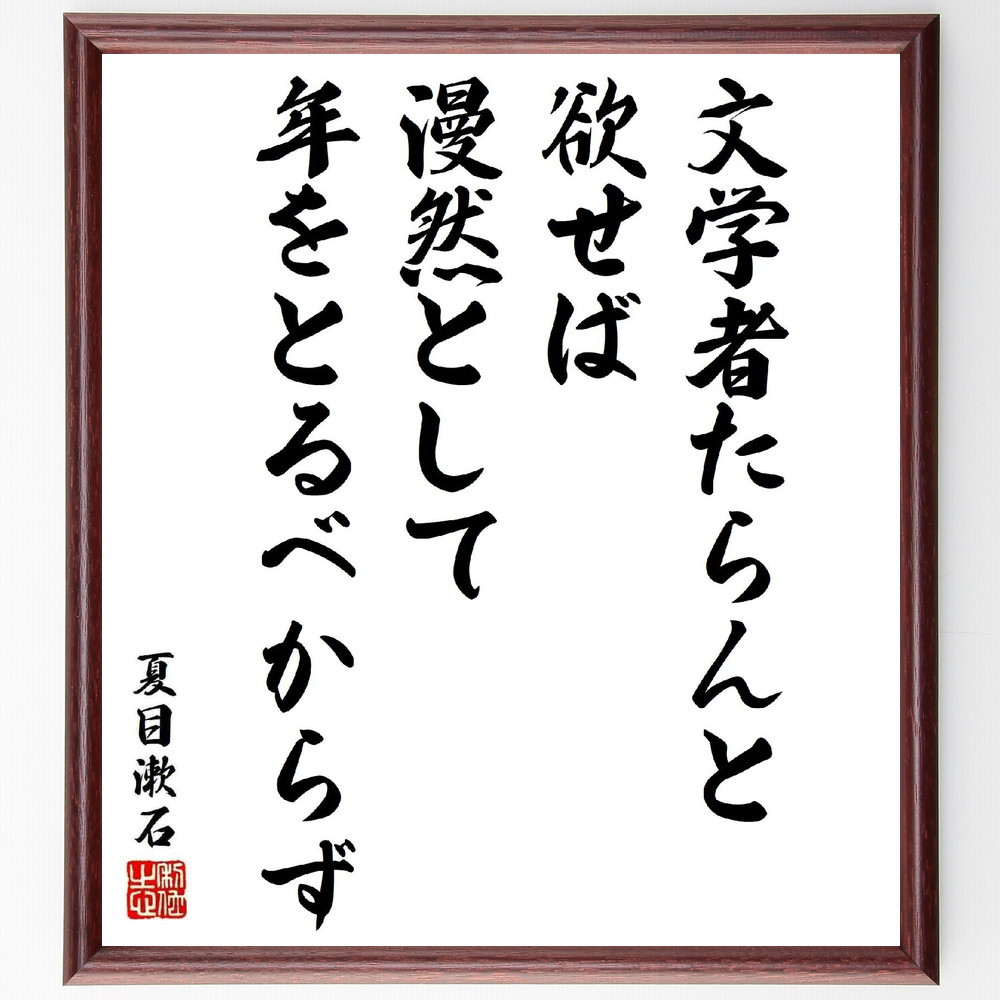 文学者たらんと
欲せば
漫然として
年をとるべからず
夏目漱石